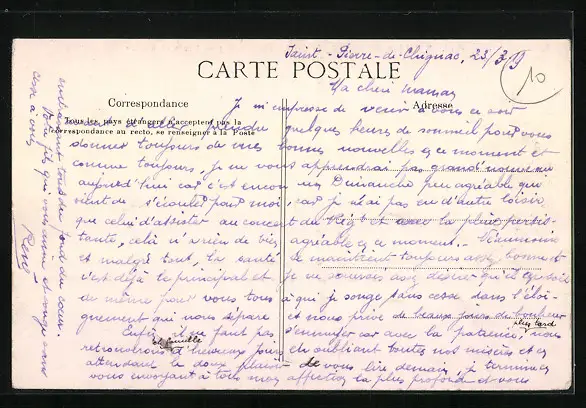 Saint-Pierre-de-Chignac, 23/3/
10
CARTE POSTALE
Ma chère maman
Correspondance
Adresse
Tous les pays étrangers n'acceptent pas la
correspondance au recto, se renseigner à la Poste
Je m'empresse de venir à vous ce soir
prendre quelques heures de sommeil pour vous
donner toujours de mes bonnes nouvelles en ce moment et
comme toujours, je ne vous apprendrai pas grand'
aujourd'hui car c'est encore un Dimanche peu agréable qui
vient de s'écouler pour moi, car je n'ai pas eu d'autre loisir
que celui d'assister au concert du et avec la pluie persis-
tante, celà n'a rien de bien agréable en ce moment.
et malgré tout, la santé se maintient toujours assez bonne et
c'est déjà le principal et je ne saurais assez désirer qu'il en soit
de même pour vous tous à qui je songe sans cesse dans l'éloi-
gnement qui nous sépare et nous prive de beaux jours de bonheur
Enfin, il ne faut pas s'ennuyer car avec la patience, nous
plus tard
retrouverons d'heureux jours en oubliant toutes nos misères et en
et famille
attendant le doux plaisir de vous lire demain, je termine en
vous envoyant à tous mon affection la plus profonde et vous
embrassant tous du fond du cœur.
Votre fils qui vous aime et songe sans
cesse à vous
René